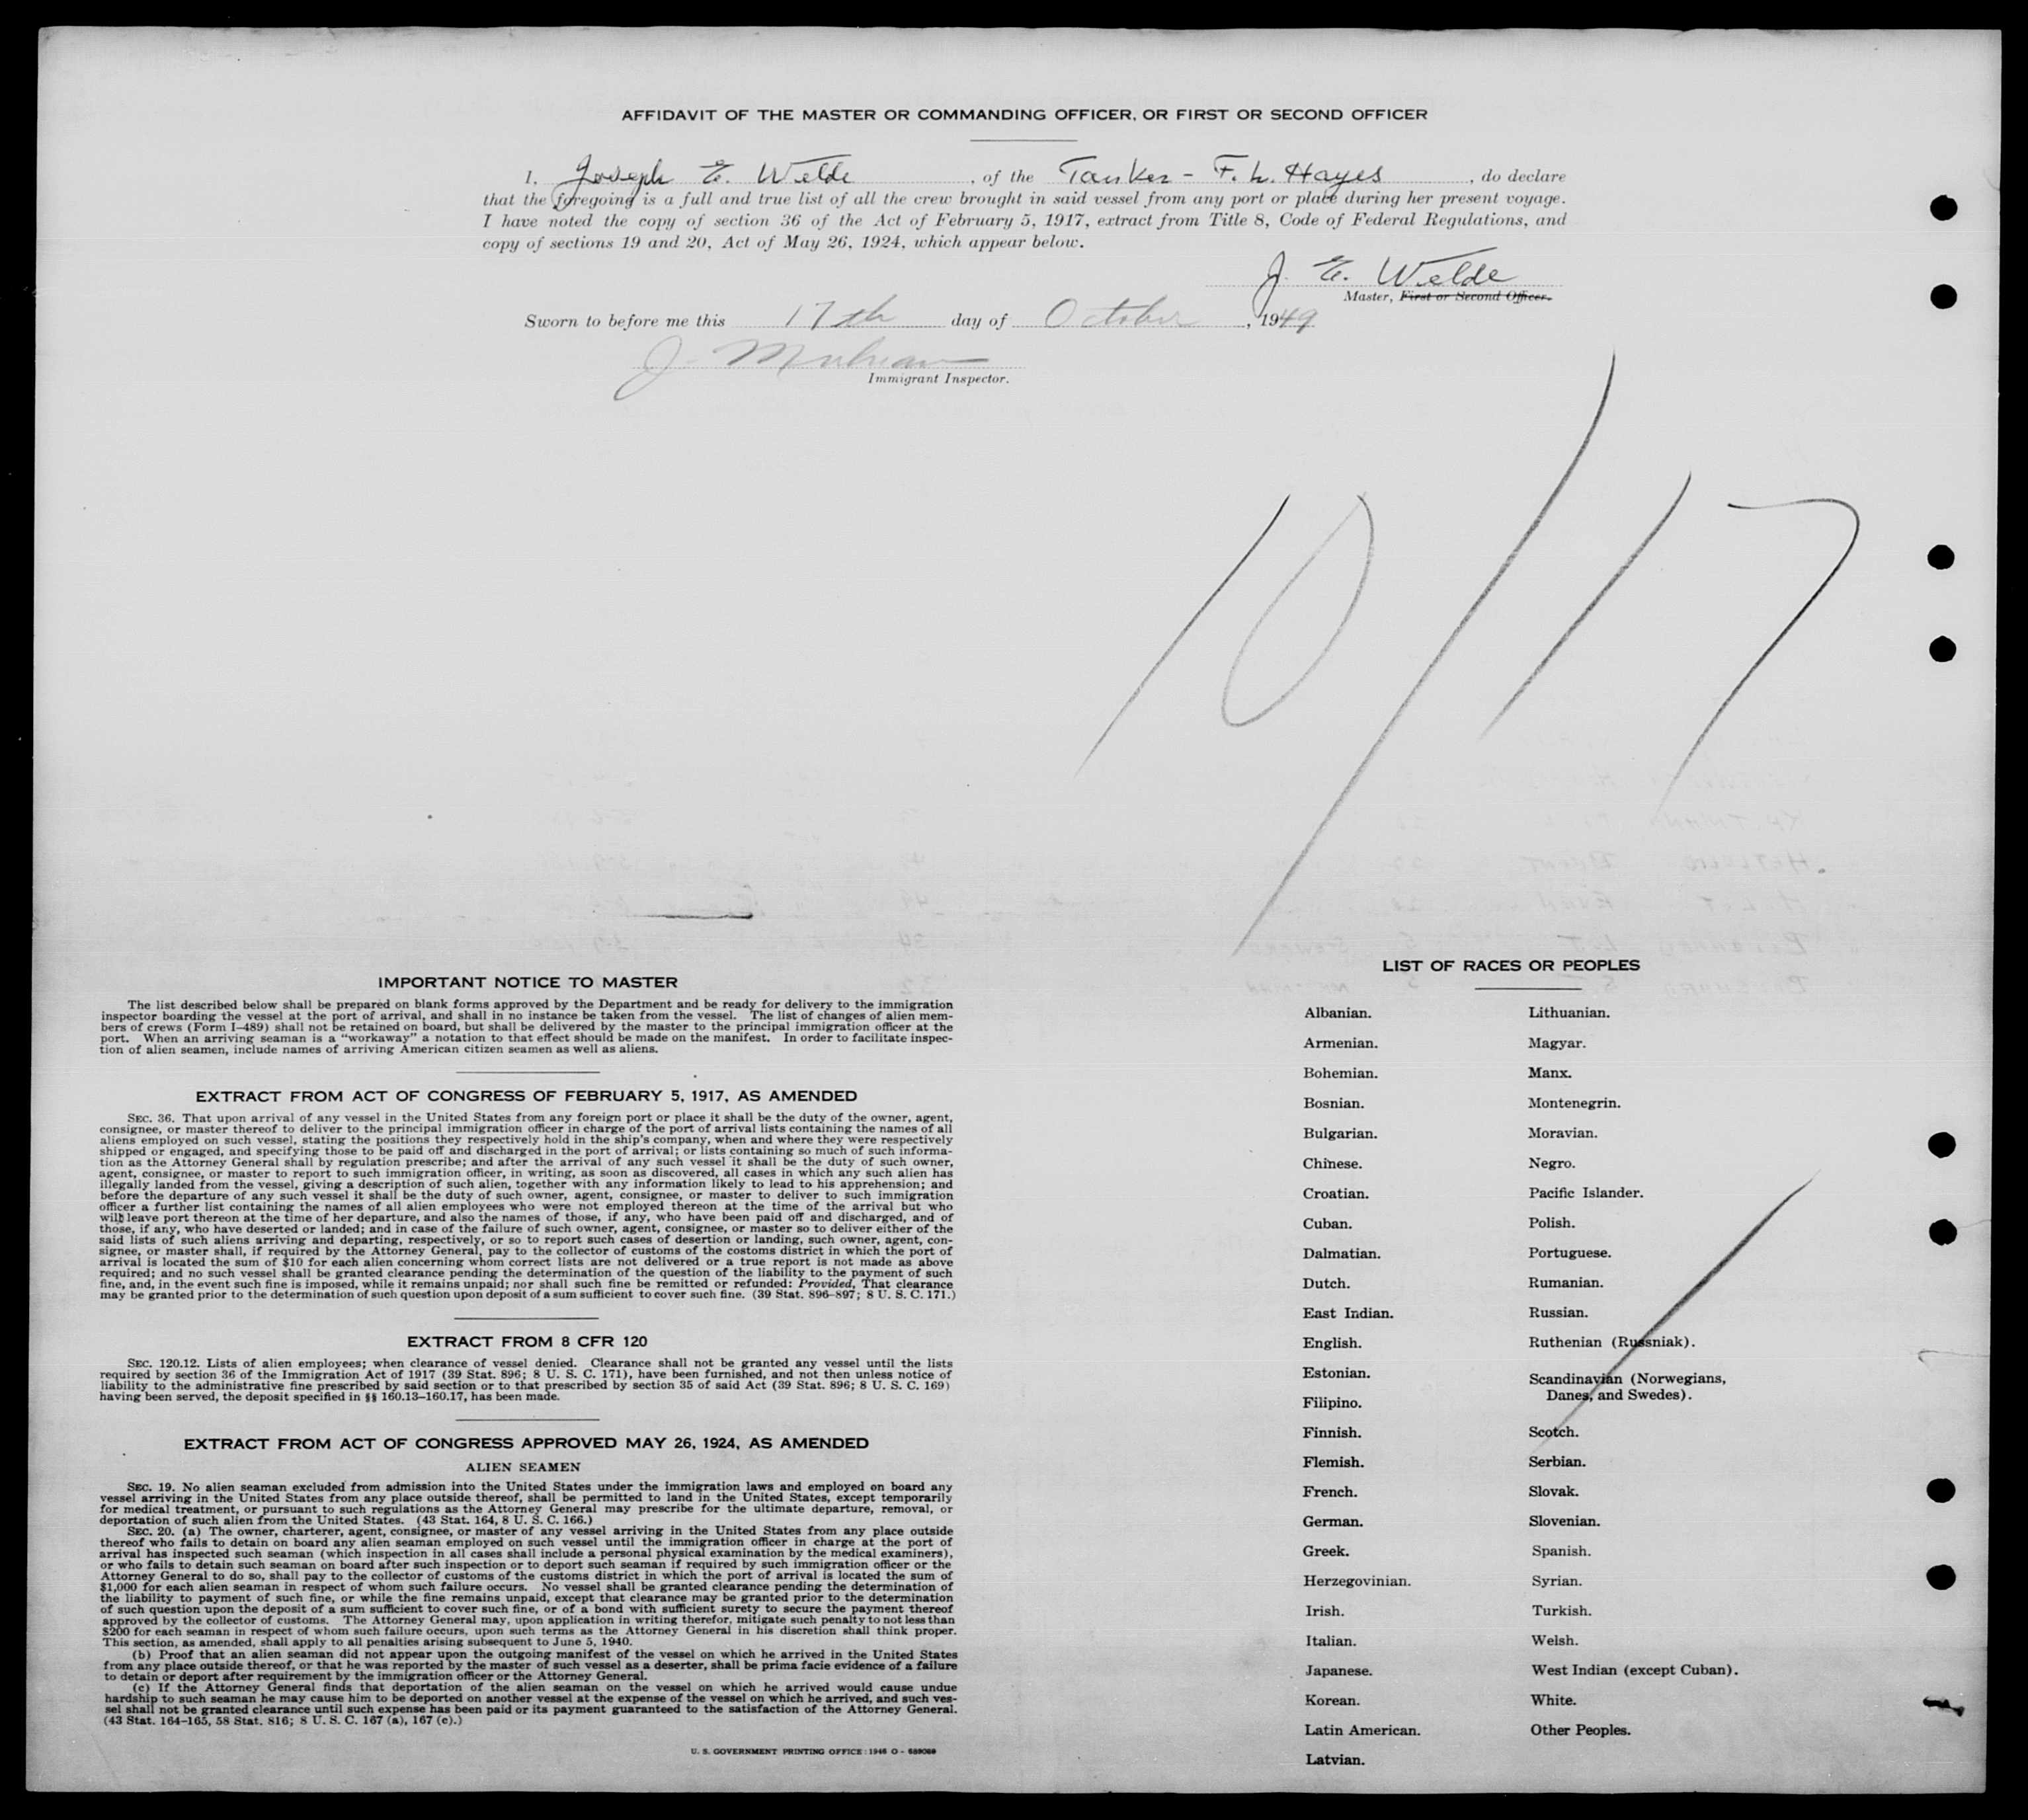 AFFIDAVIT OF THE MASTER OR COMMANDING OFFICER, OR FIRST OR SECOND OFFICER
I, Joseph E. Welde, of the Tanker - F. L. Hayes, do declare
that the foregoing is a full and true list of all the crew brought in said vessel from any port or place during her present voyage.
I have noted the copy of section 36 of the Act of February 5, 1917, extract from Title 8, Code of Federal Regulations, and
copy of sections 19 and 20, Act of May 26, 1924, which appear below.
J. E. Welde
Master, First or Second Officer.
Sworn to before me this 17th day of October, 1949
J.
Immigrant Inspector.
10/17
IMPORTANT NOTICE TO MASTER
The list described below shall be prepared on blank forms approved by the Department and be ready for delivery to the immigration
inspector boarding the vessel at the port of arrival, and shall in no instance be taken from the vessel. The list of changes of alien mem-
bers of crews (Form I–489) shall not be retained on board, but shall be delivered by the master to the principal immigration officer at the
port. When an arriving seaman is a "workaway" a notation to that effect should be made on the manifest. In order to facilitate inspec-
tion of alien seamen, include names of arriving American citizen seamen as well as aliens.
EXTRACT FROM ACT OF CONGRESS OF FEBRUARY 5, 1917, AS AMENDED
SEC. 36. That upon arrival of any vessel in the United States from any foreign port or place it shall be the duty of the owner, agent,
consignee, or master thereof to deliver to the principal immigration officer in charge of the port of arrival lists containing the names of all
aliens employed on such vessel, stating the positions they respectively hold in the ship's company, when and where they were respectively
shipped or engaged, and specifying those to be paid off and discharged in the port of arrival; or lists containing so much of such informa-
tion as the Attorney General shall by regulation prescribe; and after the arrival of any such vessel it shall be the duty of such owner,
agent, consignee, or master to report to such immigration officer, in writing, as soon as discovered, all cases in which any such alien has
illegally landed from the vessel, giving a description of such alien, together with any information likely to lead to his apprehension; and
before the departure of any such vessel it shall be the duty of such owner, agent, consignee, or master to deliver to such immigration
officer a further list containing the names of all alien employees who were not employed thereon at the time of the arrival but who
will leave port thereon at the time of her departure, and also the names of those, if any, who have been paid off and discharged, and of
those, if any, who have deserted or landed; and in case of the failure of such owner, agent, consignee, or master so to deliver either of the
said lists of such aliens arriving and departing, respectively, or so to report such cases of desertion or landing, such owner, agent, con-
signee, or master shall, if required by the Attorney General, pay to the collector of customs of the costoms district in which the port of
arrival is located the sum of $10 for each alien concerning whom correct lists are not delivered or a true report is not made as above
required; and no such vessel shall be granted clearance pending the determination of the question of the liability to the payment of such
fine, and, in the event such fine is imposed, while it remains unpaid; nor shall such fine be remitted or refunded: Provided, That clearance
may be granted prior to the determination of such question upon deposit of a sum sufficient to cover such fine. (39 Stat. 896–897; 8 U. S. C. 171.)
EXTRACT FROM 8 CFR 120
SEC. 120.12. Lists of alien employees; when clearance of vessel denied. Clearance shall not be granted any vessel until the lists
required by section 36 of the Immigration Act of 1917 (39 Stat. 896; 8 U. S. C. 171), have been furnished, and not then unless notice of
liability to the administrative fine prescribed by said section or to that prescribed by section 35 of said Act (39 Stat. 896; 8 U. S. C. 169)
having been served, the deposit specified in §§ 160.13–160.17, has been made.
EXTRACT FROM ACT OF CONGRESS APPROVED MAY 26, 1924, AS AMENDED
ALIEN SEAMEN
SEC. 19. No alien seaman excluded from admission into the United States under the immigration laws and employed on board any
vessel arriving in the United States from any place outside thereof, shall be permitted to land in the United States, except temporarily
for medical treatment, or pursuant to such regulations as the Attorney General may prescribe for the ultimate departure, removal, or
deportation of such alien from the United States. (43 Stat. 164, 8 U. S. C. 166.)
SEC. 20. (a) The owner, charterer, agent, consignee, or master of any vessel arriving in the United States from any place outside
thereof who fails to detain on board any alien seaman employed on such vessel until the immigration officer in charge at the port of
arrival has inspected such seaman (which inspection in all cases shall include a personal physical examination by the medical examiners),
or who fails to detain such seaman on board after such inspection or to deport such seaman if required by such immigration officer or the
Attorney General to do so, shall pay to the collector of customs of the customs district in which the port of arrival is located the sum of
$1,000 for each alien seaman in respect of whom such failure occurs. No vessel shall be granted clearance pending the determination of
the liability to payment of such fine, or while the fine remains unpaid, except that clearance may be granted prior to the determination
of such question upon the deposit of a sum sufficient to cover such fine, or of a bond with sufficient surety to secure the payment thereof
approved by the collector of customs. The Attorney General may, upon application in writing therefor, mitigate such penalty to not less than
$200 for each seaman in respect of whom such failure occurs, upon such terms as the Attorney General in his discretion shall think proper.
This section, as amended, shall apply to all penalties arising subsequent to June 5, 1940.
(b) Proof that an alien seaman did not appear upon the outgoing manifest of the vessel on which he arrived in the United States
from any place outside thereof, or that he was reported by the master of such vessel as a deserter, shall be prima facie evidence of a failure
to detain or deport after requirement by the immigration officer or the Attorney General.
(c) If the Attorney General finds that deportation of the alien seaman on the vessel on which he arrived would cause undue
hardship to such seaman he may cause him to be deported on another vessel at the expense of the vessel on which he arrived, and such ves-
sel shall not be granted clearance until such expense has been paid or its payment guaranteed to the satisfaction of the Attorney General.
(43 Stat. 164–165, 58 Stat. 816; 8 U. S. C. 167 (a), 167 (c).)
U. S. GOVERNMENT PRINTING OFFICE : 1946 O -
LIST OF RACES OR PEOPLES
Albanian.
Armenian.
Bohemian.
Bosnian.
Bulgarian.
Chinese.
Croatian.
Cuban.
Dalmatian.
Dutch.
East Indian.
English.
Estonian.
Filipino.
Finnish.
Flemish.
French.
German.
Greek.
Herzegovinian.
Irish.
Italian.
Japanese.
Korean.
Latin American.
Latvian.
Lithuanian.
Magyar.
Manx.
Montenegrin.
Moravian.
Negro.
Pacific Islander.
Polish.
Portuguese.
Rumanian.
Russian.
Ruthenian (Russniak).
Scandinavian (Norwegians,
Danes, and Swedes).
Scotch.
Serbian.
Slovak.
Slovenian.
Spanish.
Syrian.
Turkish.
Welsh.
West Indian (except Cuban).
White.
Other Peoples.